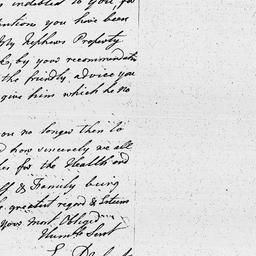 indebted to you for
you have been
My Nephews Property
by your recommendation
the friendly advice you
give him which he no
you no longer then to
how sincerely we all
for the Health and
& Family being
greatest regard & Esteem
your most Obliged
Humb Servt